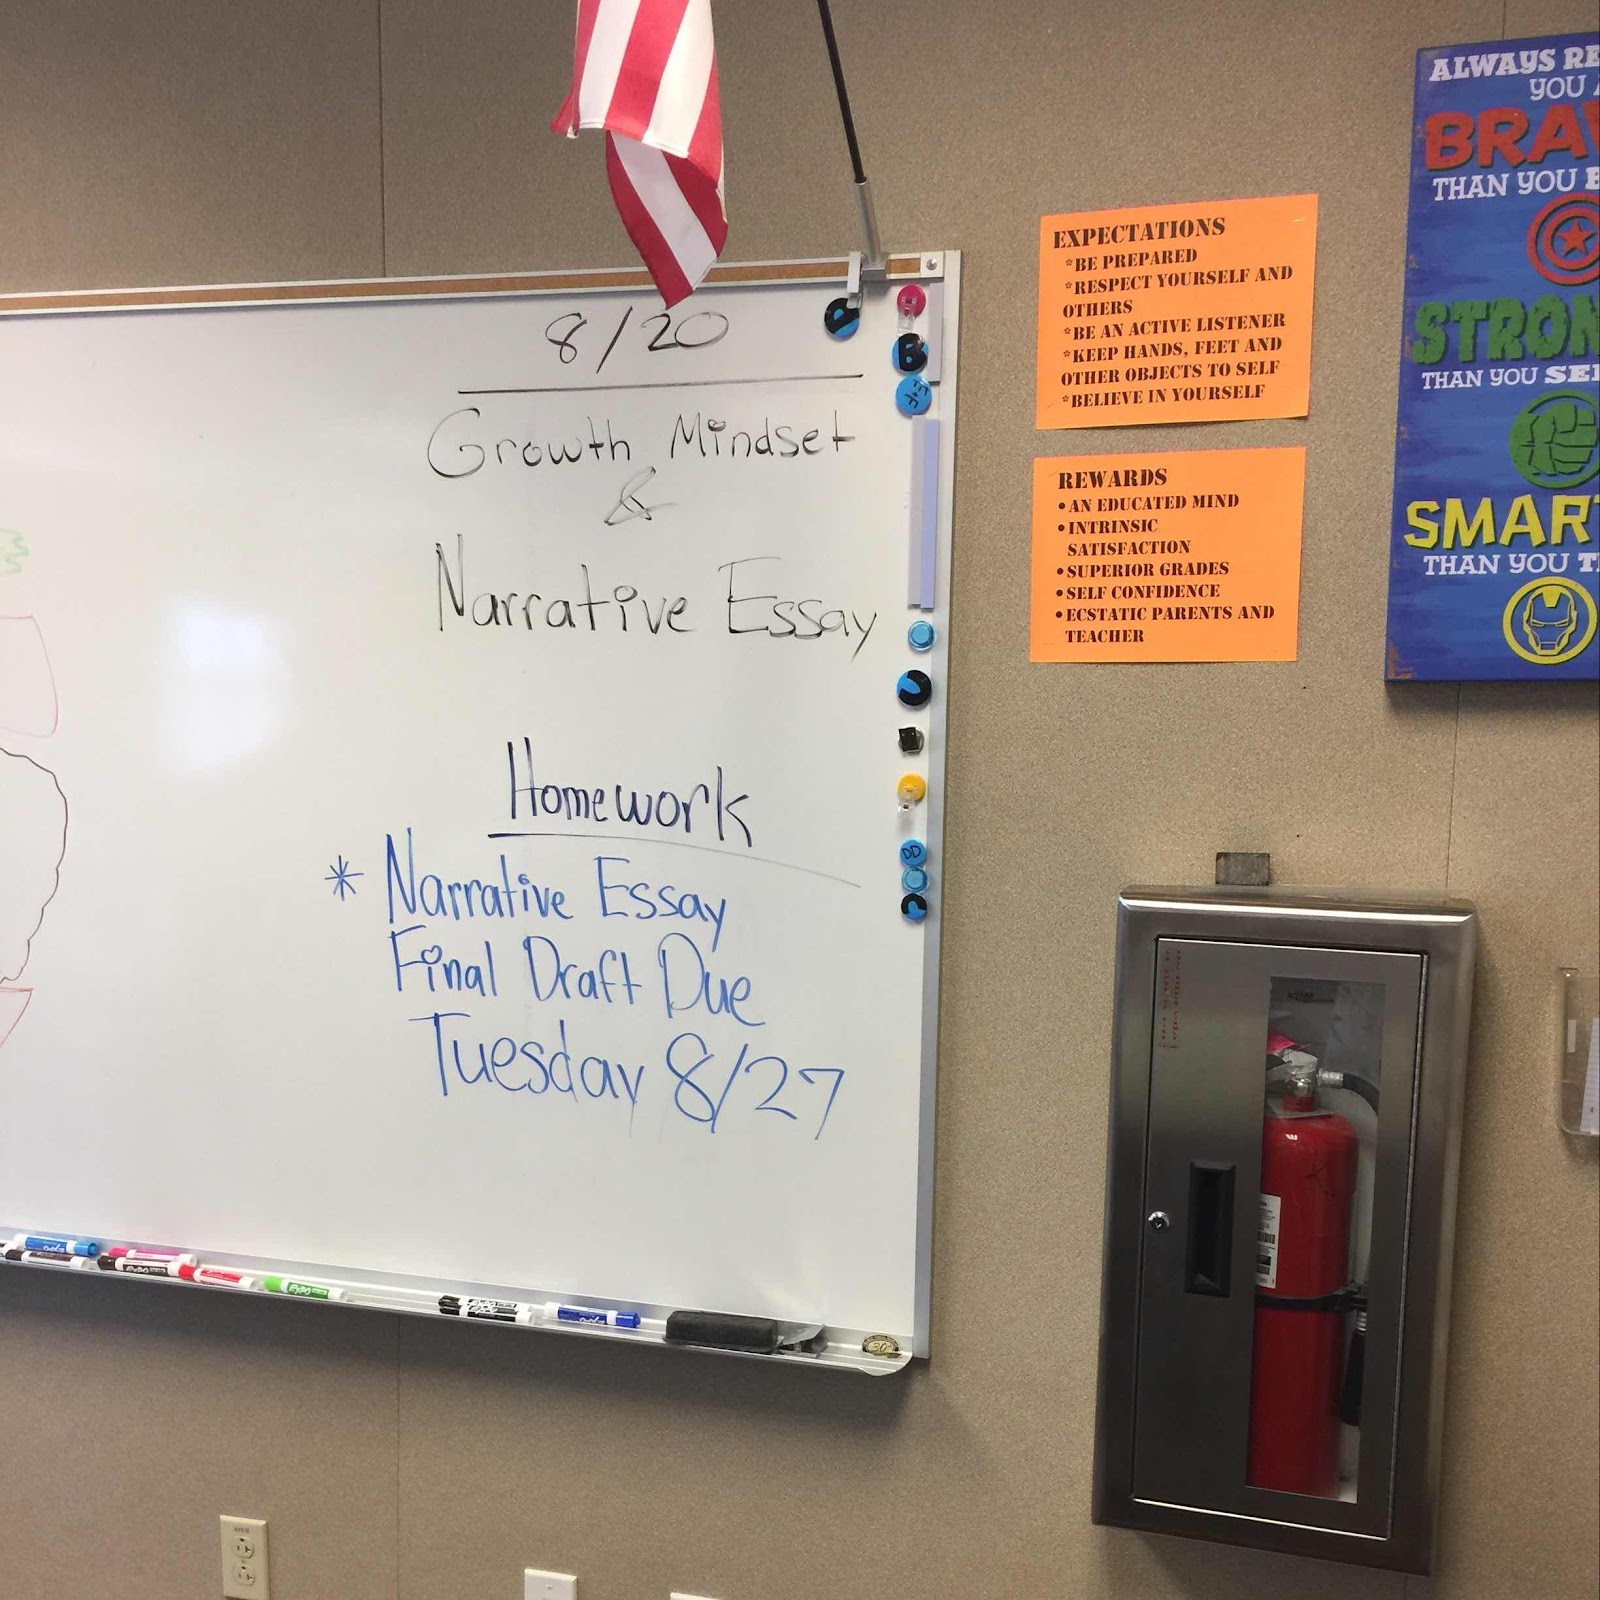 8/20
Growth Mindset
&
Narrative Essay
Homework
* Narrative Essay
Final Draft Due
Tuesday 8/27
EXPECTATIONS
*BE PREPARED
*RESPECT YOURSELF AND
OTHERS
*BE AN ACTIVE LISTENER
*KEEP HANDS, FEET AND
OTHER OBJECTS TO SELF
*BELIEVE IN YOURSELF
REWARDS
•AN EDUCATED MIND
•INTRINSIC
SATISFACTION
•SUPERIOR GRADES
•SELF CONFIDENCE
•ECSTATIC PARENTS AND
TEACHER
ALWAYS RE
YOU A
BRAV
THAN YOU B
STRON
THAN YOU SEE
SMART
THAN YOU T
B
DD
EXPO
EXPO